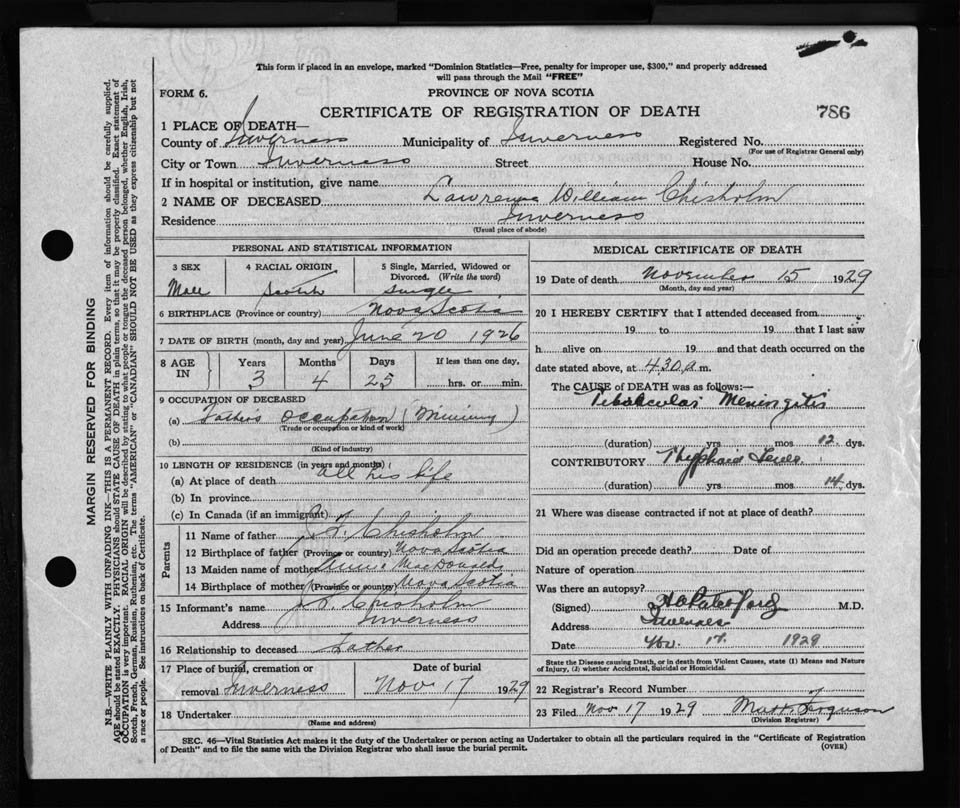 This form if placed in an envelope, marked "Dominion Statistics—Free, penalty for improper use, $300," and properly addressed
will pass through the Mail "FREE"
FORM 6.
PROVINCE OF NOVA SCOTIA
CERTIFICATE OF REGISTRATION OF DEATH
786
1 PLACE OF DEATH—
County of Inverness Municipality of Inverness Registered No.
(For use of Registrar General only)
City or Town Inverness Street House No.
If in hospital or institution, give name
2 NAME OF DECEASED Lawrence William Chisholm
Residence Inverness
(Usual place of abode)
PERSONAL AND STATISTICAL INFORMATION
3 SEX 4 RACIAL ORIGIN 5 Single, Married, Widowed or
Divorced. (Write the word)
Male Scotch Single
6 BIRTHPLACE (Province or country) Nova Scotia
7 DATE OF BIRTH (month, day and year) June 20 1926
8 AGE IN Years Months Days If less than one day,
3 4 25 hrs. or min.
9 OCCUPATION OF DECEASED
(a) Father's occupation (Mining)
(Trade or occupation or kind of work)
(b)
(Kind of industry)
10 LENGTH OF RESIDENCE (in years and months)
(a) At place of death all his life
(b) In province
(c) In Canada (if an immigrant)
Parents
11 Name of father Chisholm
12 Birthplace of father (Province or country) Nova Scotia
13 Maiden name of mother Annie MacDonald
14 Birthplace of mother (Province or country) Nova Scotia
15 Informant's name Chisholm
Address Inverness
16 Relationship to deceased Father
17 Place of burial, cremation or Date of burial
removal Inverness Nov 17 1929
18 Undertaker
(Name and address)
MEDICAL CERTIFICATE OF DEATH
19 Date of death November 15 1929
(Month, day and year)
20 I HEREBY CERTIFY that I attended deceased from
19 to 19 that I last saw
h alive on 19 and that death occurred on the
date stated above, at 4.30 a m.
The CAUSE of DEATH was as follows:—
Tubercular Meningitis
(duration) yrs mos 12 dys.
CONTRIBUTORY Thyphoid Fever
(duration) yrs mos 14 dys.
21 Where was disease contracted if not at place of death?
Did an operation precede death? Date of
Nature of operation
Was there an autopsy?
(Signed) M.D.
Address Inverness
Date Nov. 1929
State the Disease causing Death, or in death from Violent Causes, state (1) Means and Nature
of Injury, (2) whether Accidental, Suicidal or Homicidal.
22 Registrar's Record Number
23 Filed Nov 17 1929 Ferguson
(Division Registrar)
SEC. 46—Vital Statistics Act makes it the duty of the Undertaker or person acting as Undertaker to obtain all the particulars required in the "Certificate of Registration
of Death" and to file the same with the Division Registrar who shall issue the burial permit.
(OVER)
MARGIN RESERVED FOR BINDING
N.B.—WRITE PLAINLY WITH UNFADING INK—THIS IS A PERMANENT RECORD. Every item of information should be carefully supplied.
AGE should be stated EXACTLY. PHYSICIANS should STATE CAUSE OF DEATH in plain terms, so that it may be properly classified. Exact statement of
OCCUPATION is very important. RACIAL ORIGIN will be described by stating to what people or tongue the deceased person belonged, whether English, Irish,
Scotch, French, German, Russian, Ruthenian, etc. The terms "AMERICAN" or "CANADIAN" SHOULD NOT BE USED as they express citizenship but not
a race or people. See instructions on back of Certificate.